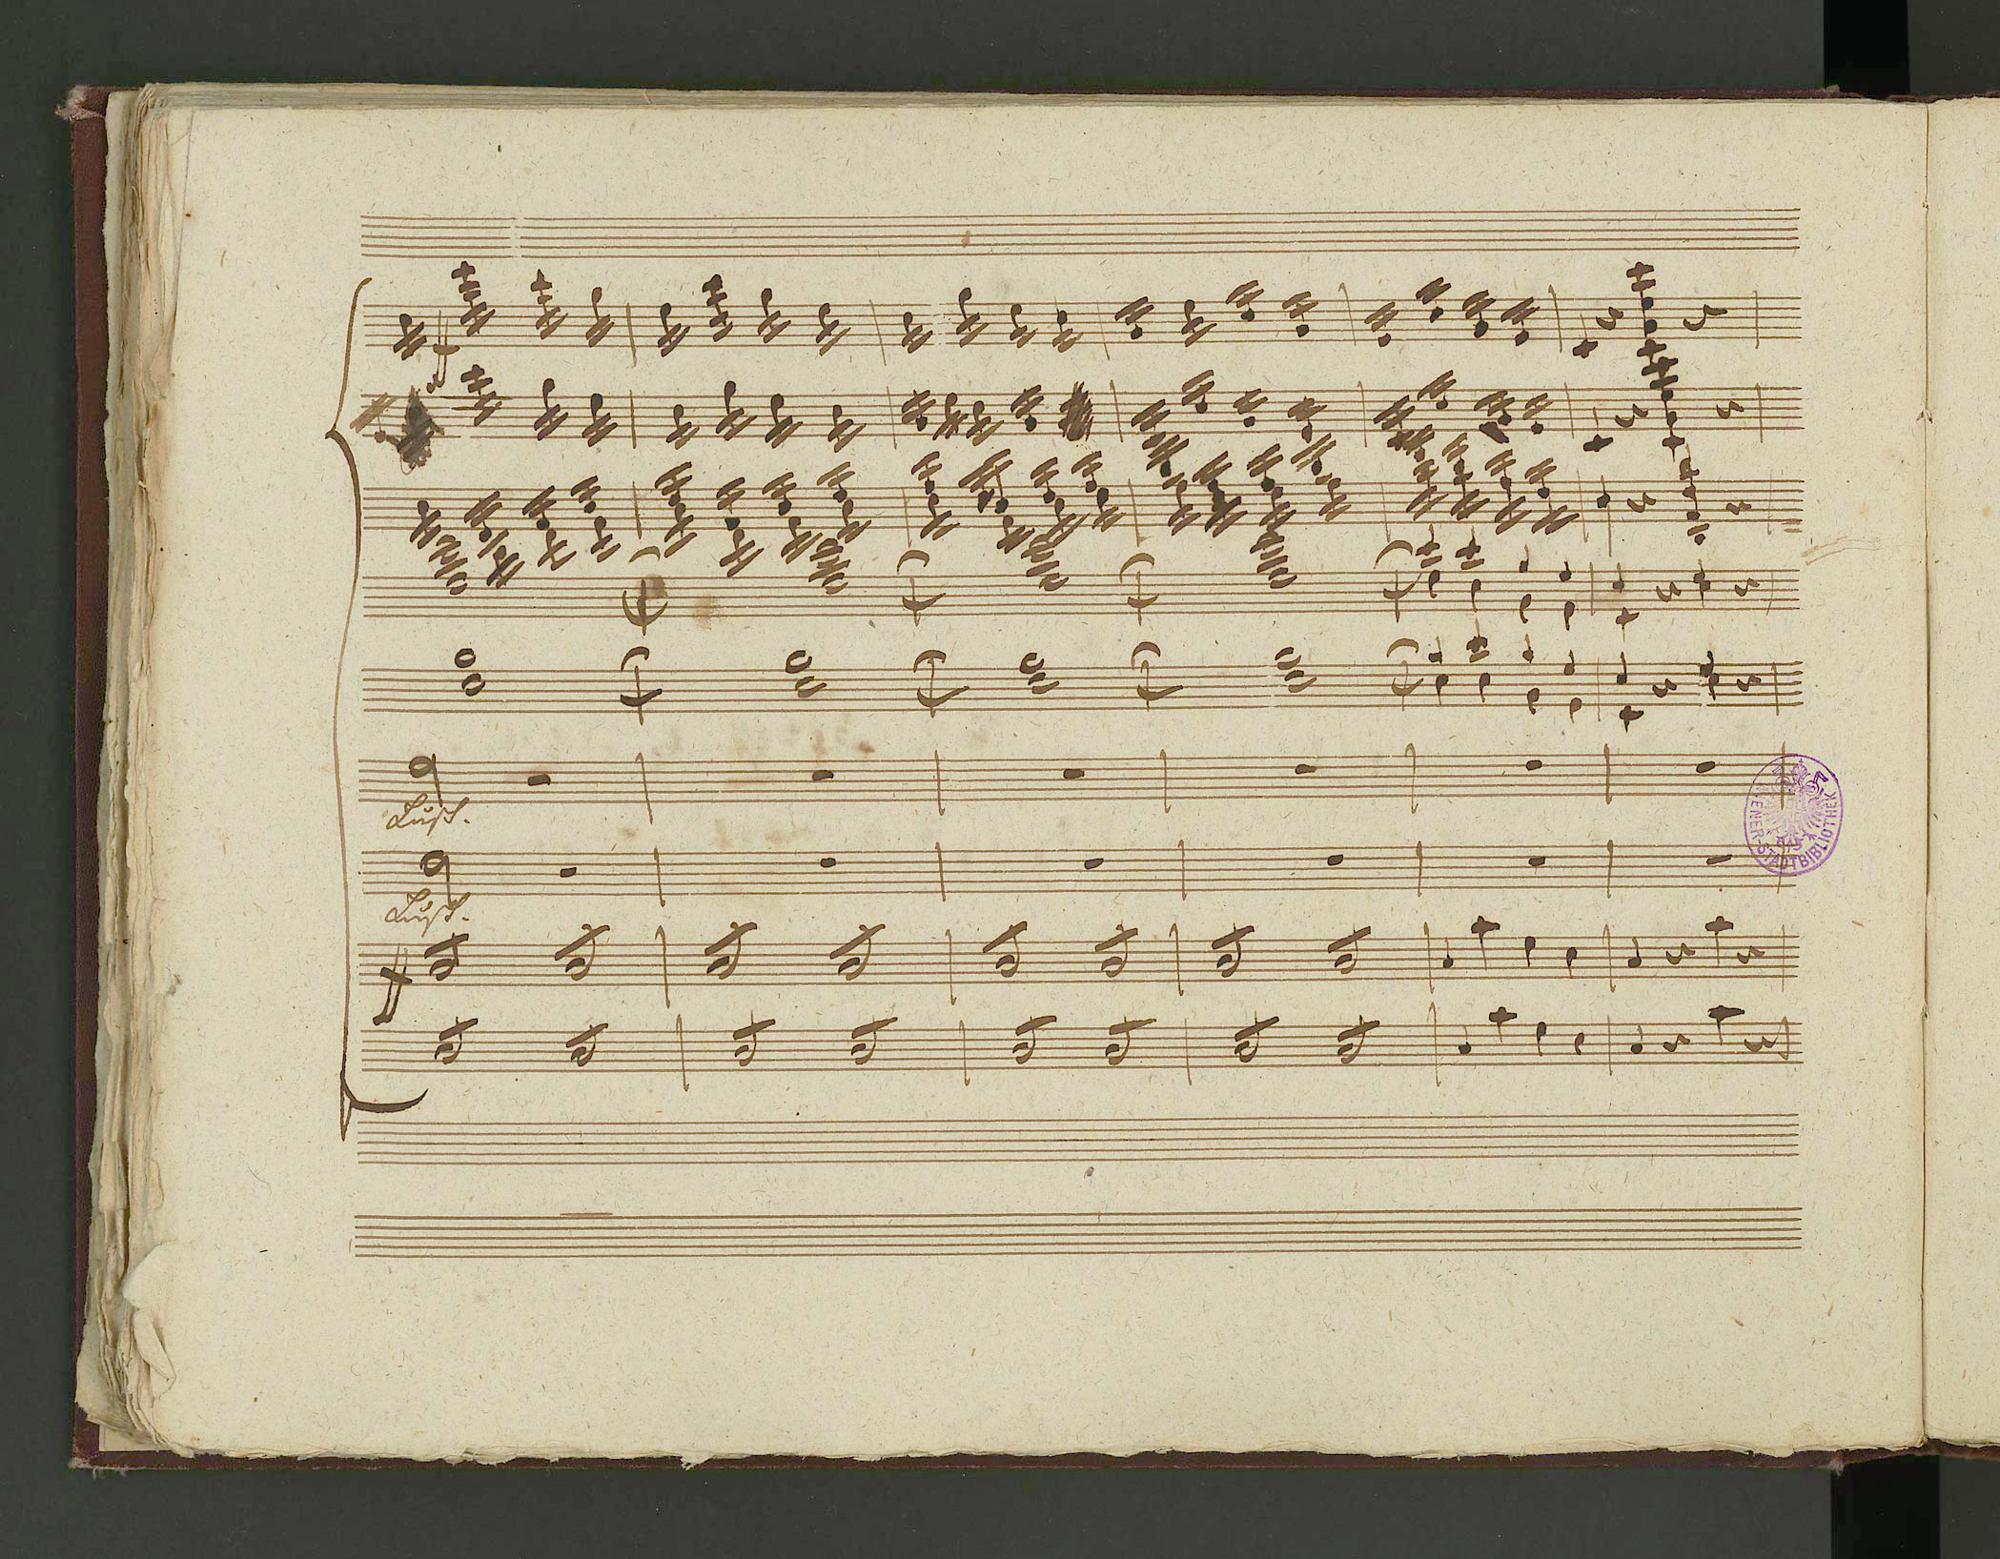 ff
Lust.
Lust.
ff
WIENER STADTBIBLIOTHEK